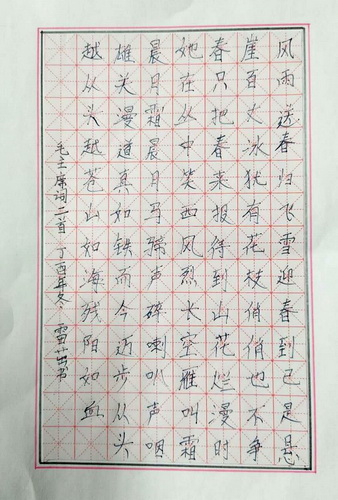 风雨送春归飞雪迎春到已是悬
崖百丈冰犹有花枝俏俏也不争
春只把春来报待到山花烂漫时
她在丛中笑西风烈长空雁叫霜
晨月霜晨月马蹄声碎喇叭声咽
雄关漫道真如铁而今迈步从头
越从头越苍山如海残阳如血
毛主席词二首 丁酉年冬. 雷